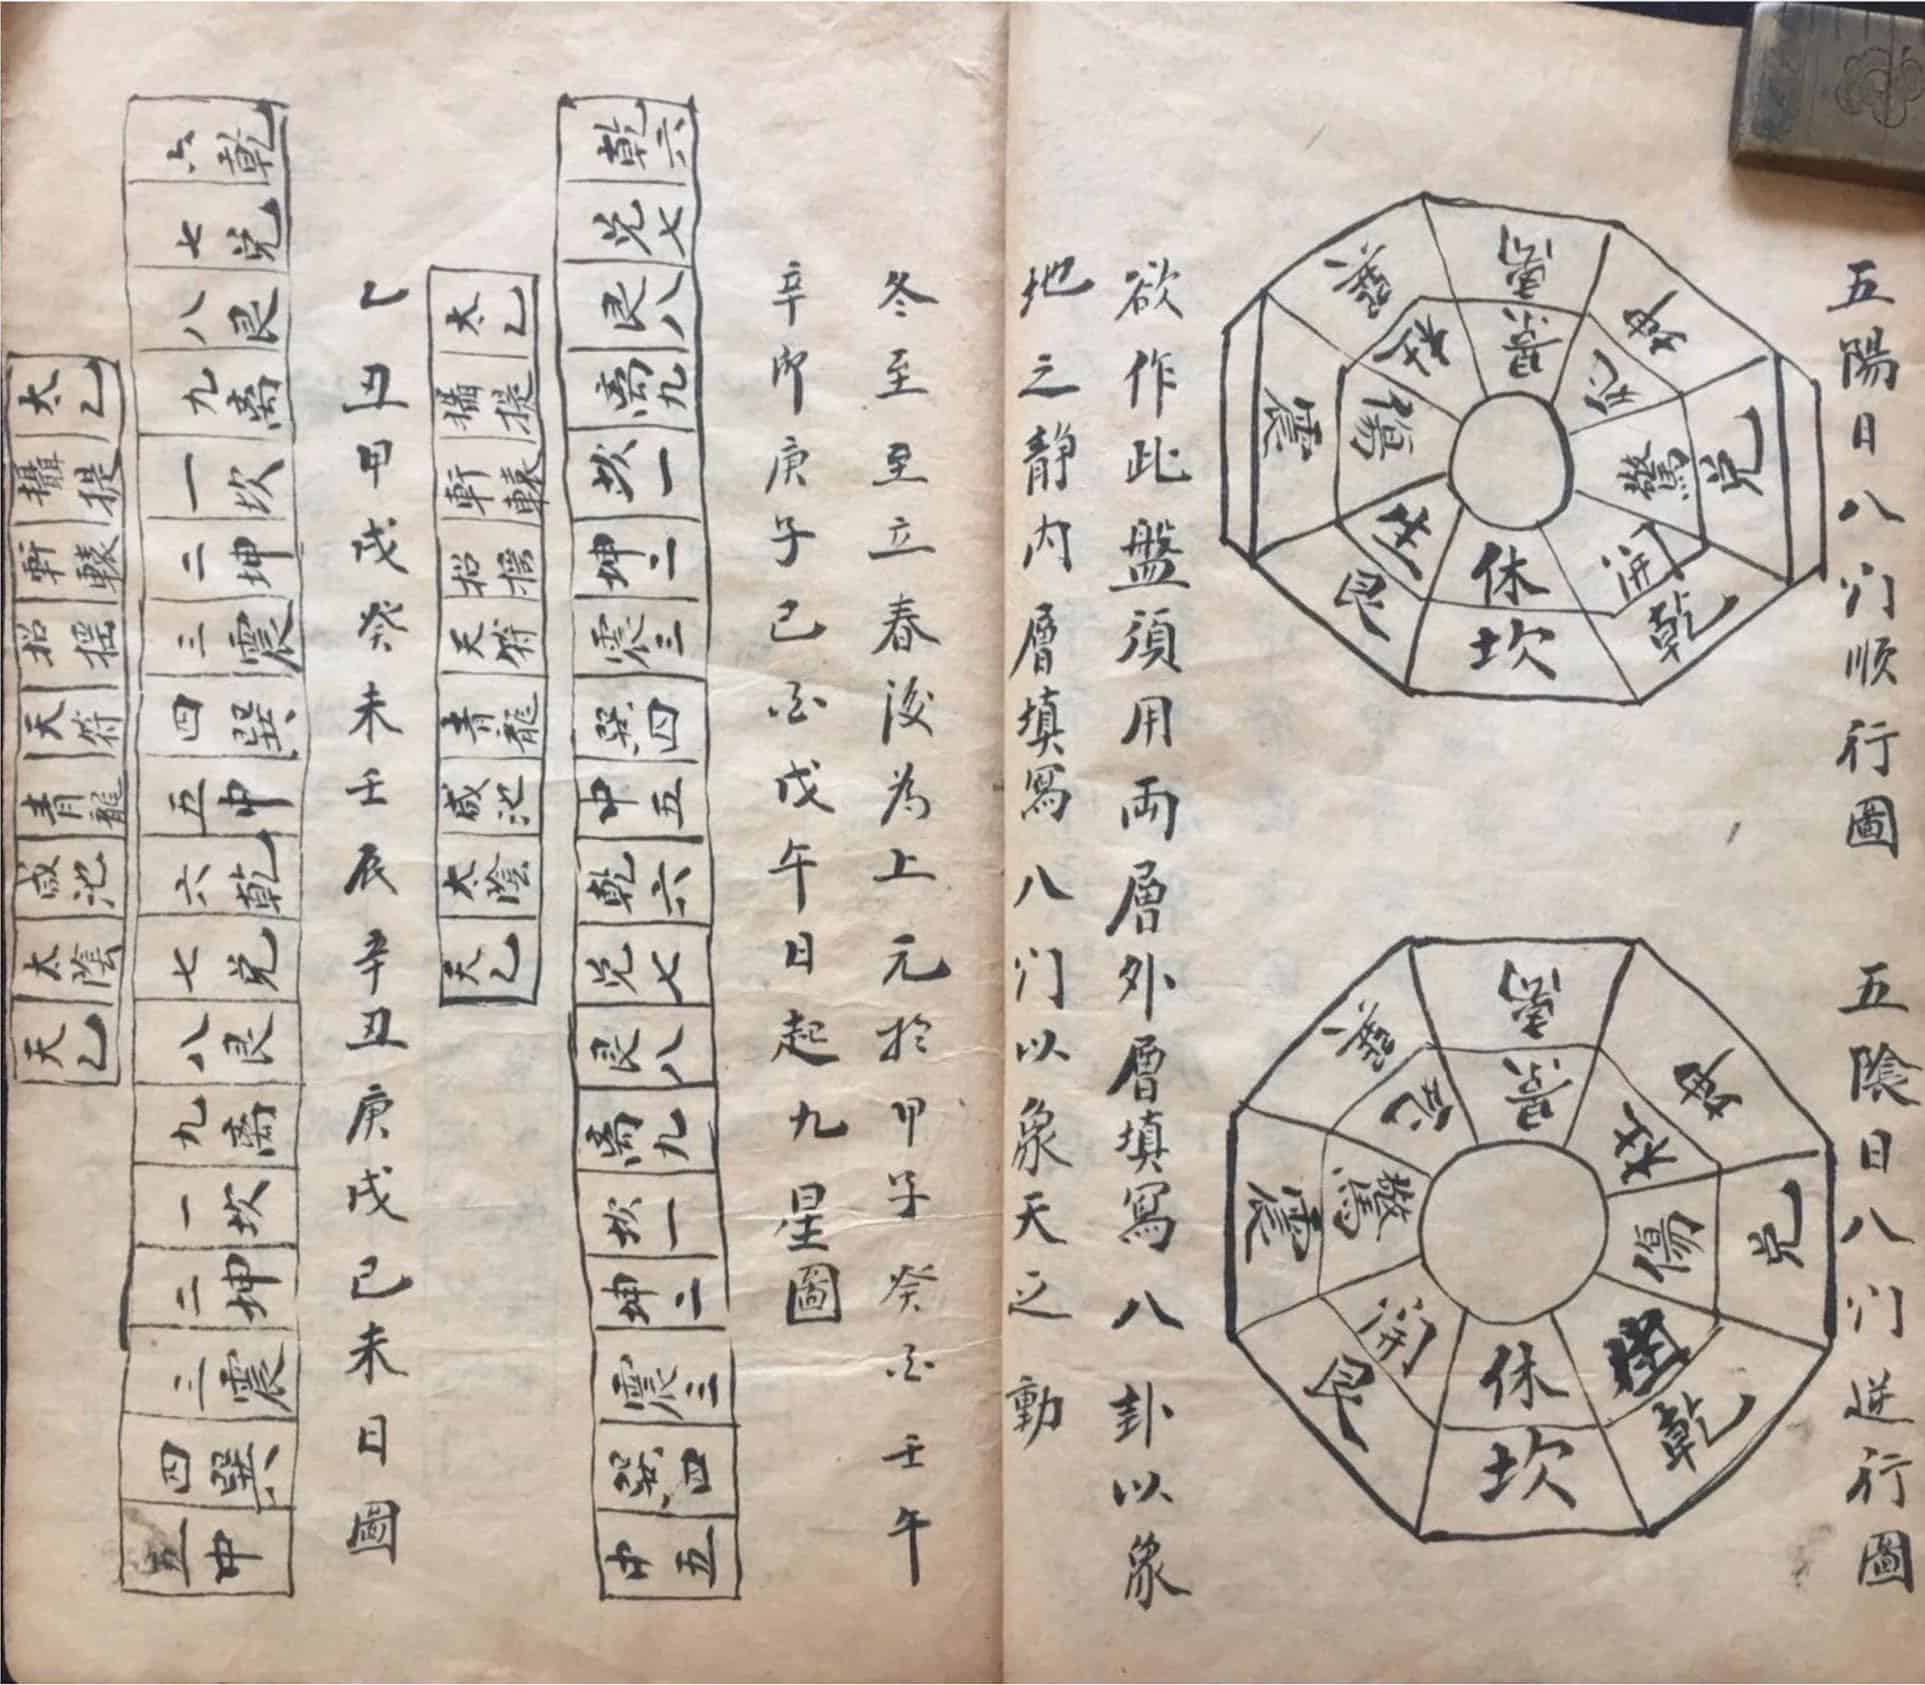 五陽日八门順行圖
五陰日八门逆行圖
離 坤 兌 乾 坎 艮 震 巽
景 死 驚 開 休 生 傷 杜
離 坤 兌 乾 坎 艮 震 巽
景 杜 傷 休 開 驚 死
欲作此盤須用両層外層填寫八卦以象
地之静内層填寫八门以象天之動
冬至至立春後為上元於甲子癸酉壬午
辛卯庚子己酉戊午日起九星圖
乾六 兌七 艮八 離九 坎一 坤二 震三 巽四 中五 乾六 兌七 艮八 離九 坎一 坤二 震三 巽四 中五
太乙 攝提 軒轅 招搖 天符 青龍 咸池 太陰 天乙
乙丑甲戌癸未壬辰辛丑庚戌己未日圖
乾六 兌七 艮八 離九 坎一 坤二 震三 巽四 中五 乾六 兌七 艮八 離九 坎一 坤二 震三 巽四 中五
太乙 攝提 軒轅 招搖 天符 青龍 咸池 太陰 天乙